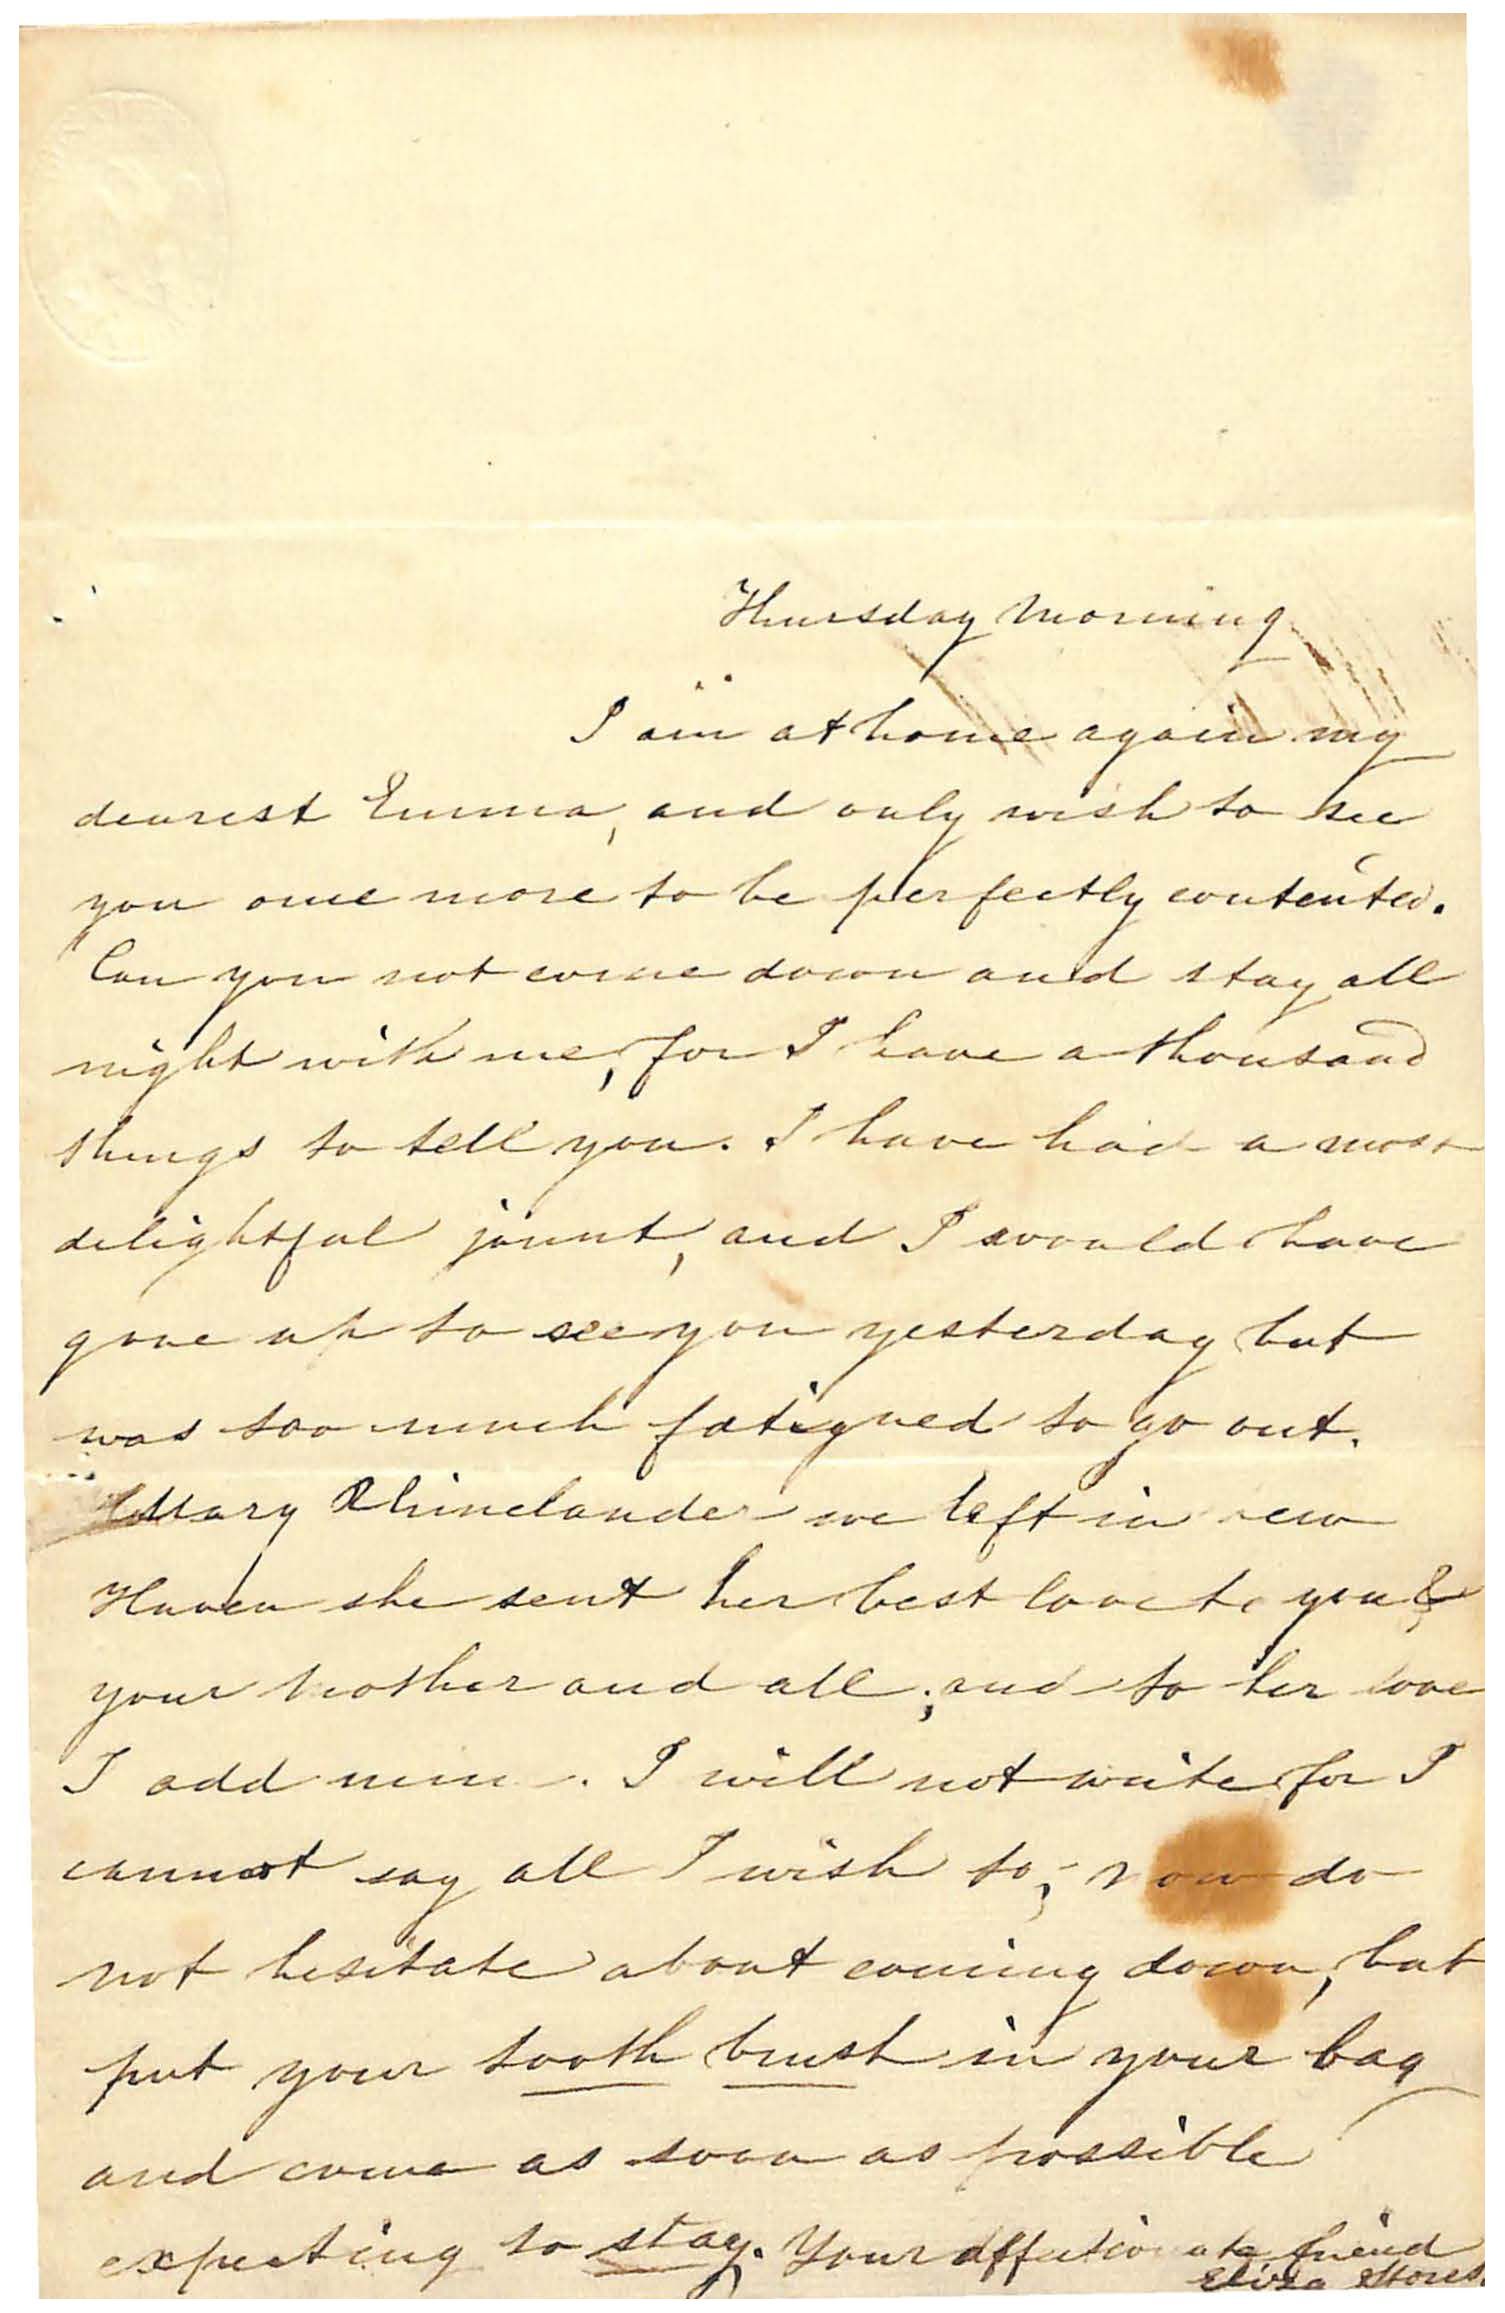 Thursday Morning
I am at home again my
dearest Emma, and only wish to see
you once more to be perfectly contented.
Can you not come down and stay all
night with me, for I have a thousand
things to tell you. I have had a most
delightful jaunt, and I would have
gone up to see you yesterday but
was too much fatigued to go out.
Mary Rhinelander we left in New
Haven she sent her best love to you &
your Mother and all; and to her love
I add mine. I will not write for I
cannot say all I wish to; now do
not hesitate about coming down, but
put your tooth brush in your bag
and come as soon as possible
expecting to stay. Your affectionate friend
Eliza